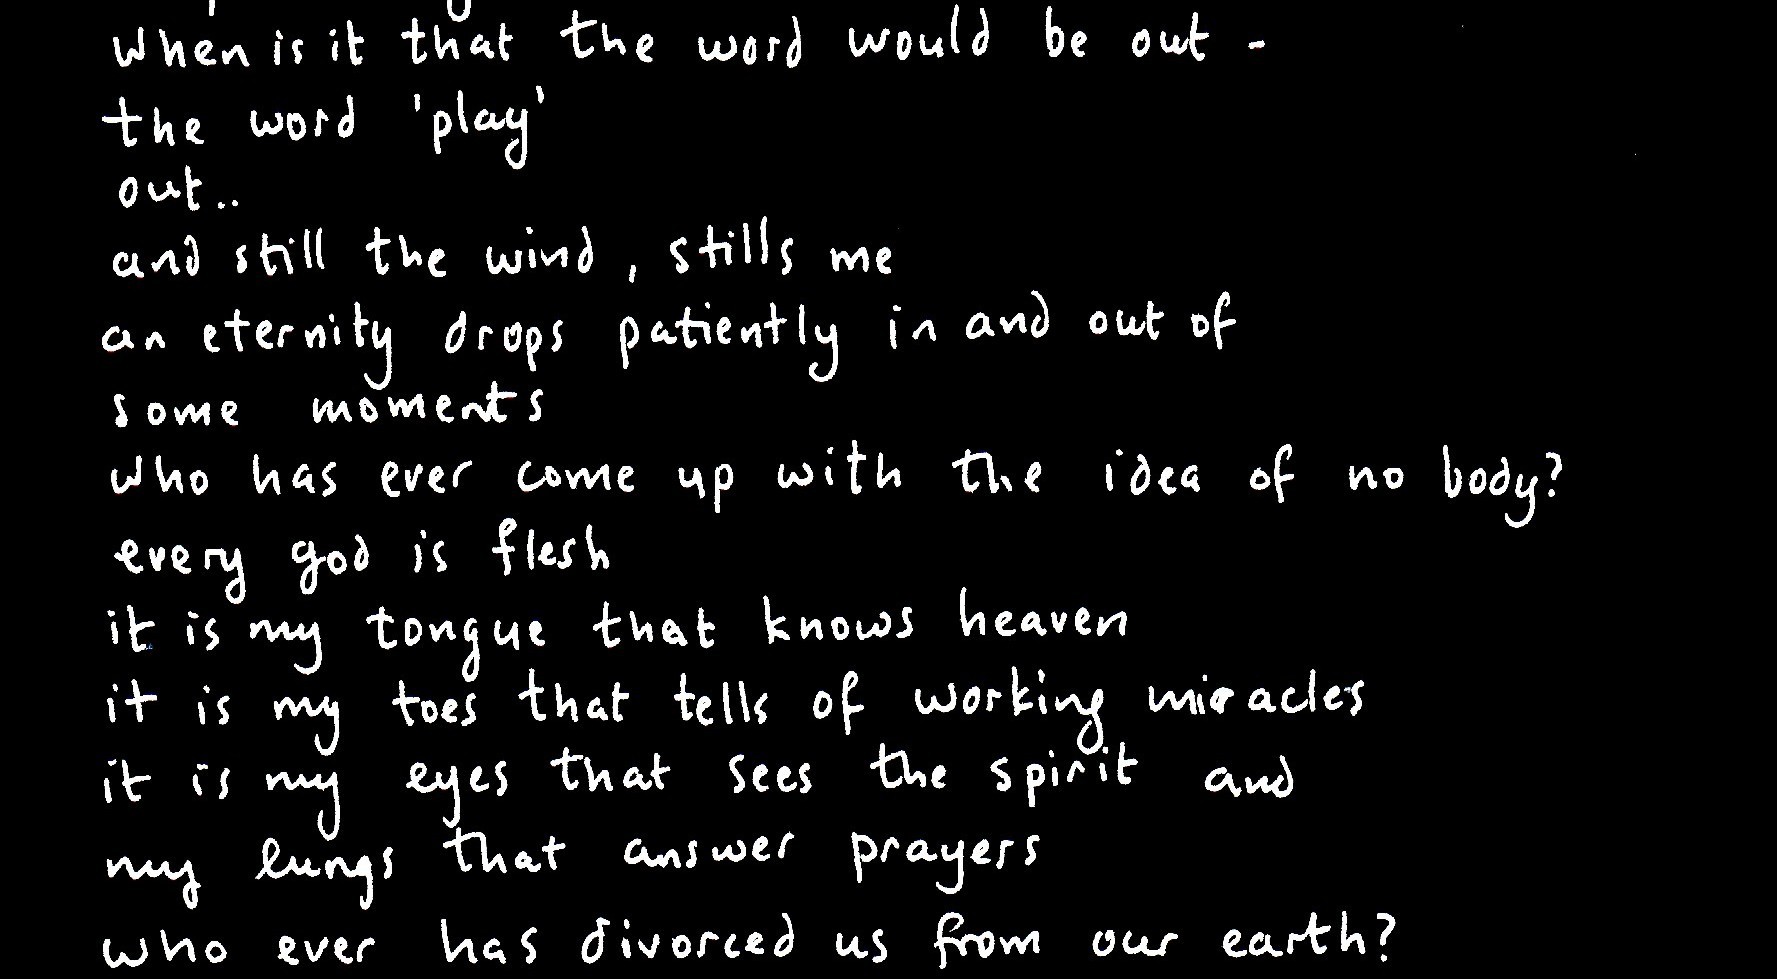 When is it that the word would be out -
the word 'play'
out..
and still the wind, stills me
an eternity drops patiently in and out of
some moments
who has ever come up with the idea of no body?
every god is flesh
it is my tongue that knows heaven
it is my toes that tells of working miracles
it is my eyes that sees the spirit and
my lungs that answer prayers
who ever has divorced us from our earth?